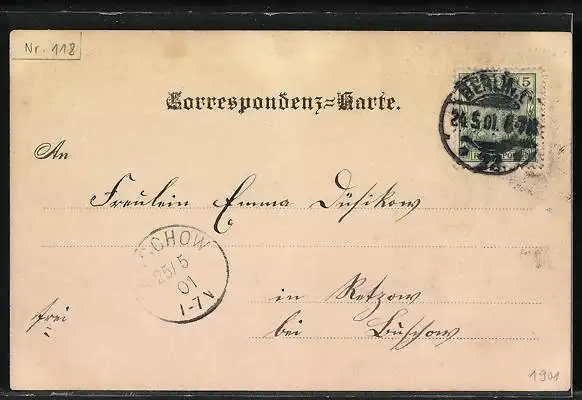 Nr. 118
Correspondenz=Karte.
5
BERLIN
24.5.01. 6-7N
An
Fräulein Emma Düsikow
CHOW
25/5
01
1-7V
in Retzow
frei
bei Buschow
1901